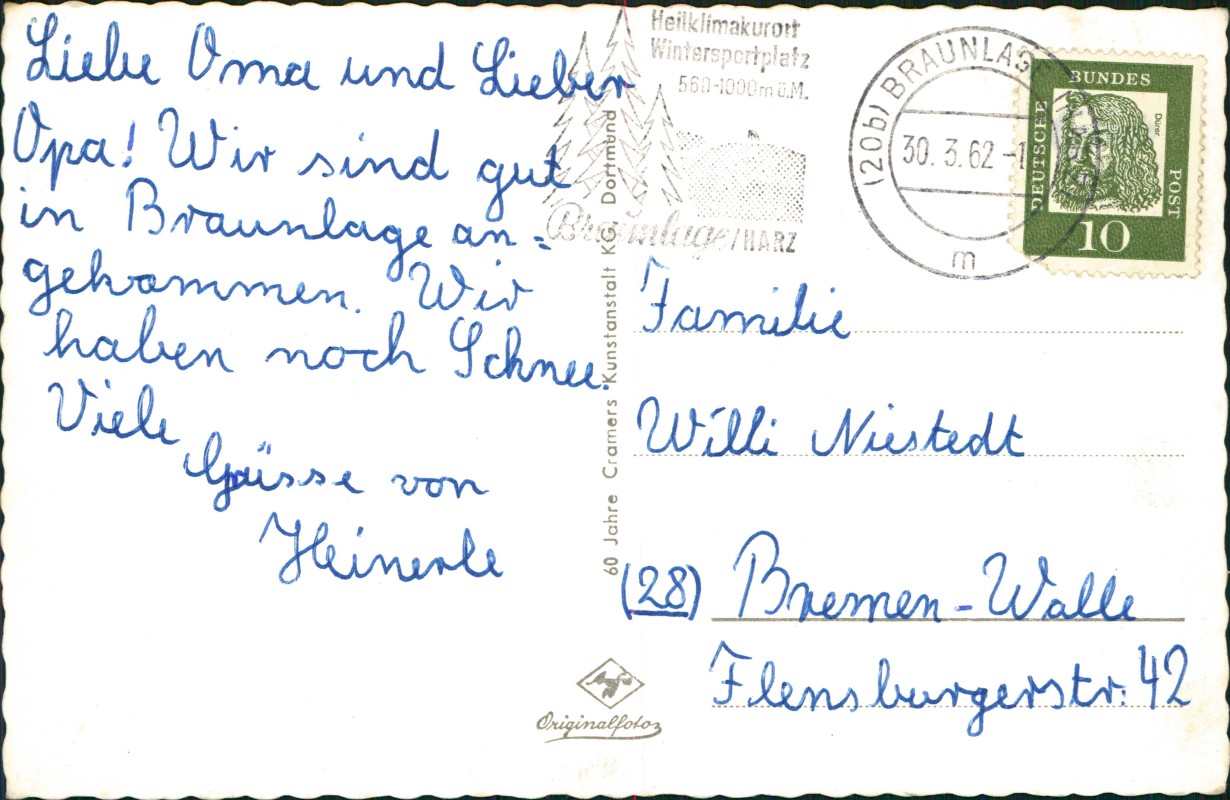 Liebe Oma und Lieber
Opa! Wir sind gut
in Braunlage an-
gekommen. Wir
haben noch Schnee.
Viele
Grüsse von
Heinerle
60 Jahre Cramers Kunstanstalt KG, Dortmund
Heilklimakurort
Wintersportplatz
560-1000m ü.M.
Braunlage/HARZ
(20b) BRAUNLAGE
30. 3.62 -1
m
DEUTSCHE
BUNDES
POST
Dürer
10
Familie
Willi Niestedt
(28) Bremen-Walle
Flensburgerstr. 42
Agfa
Originalfotos